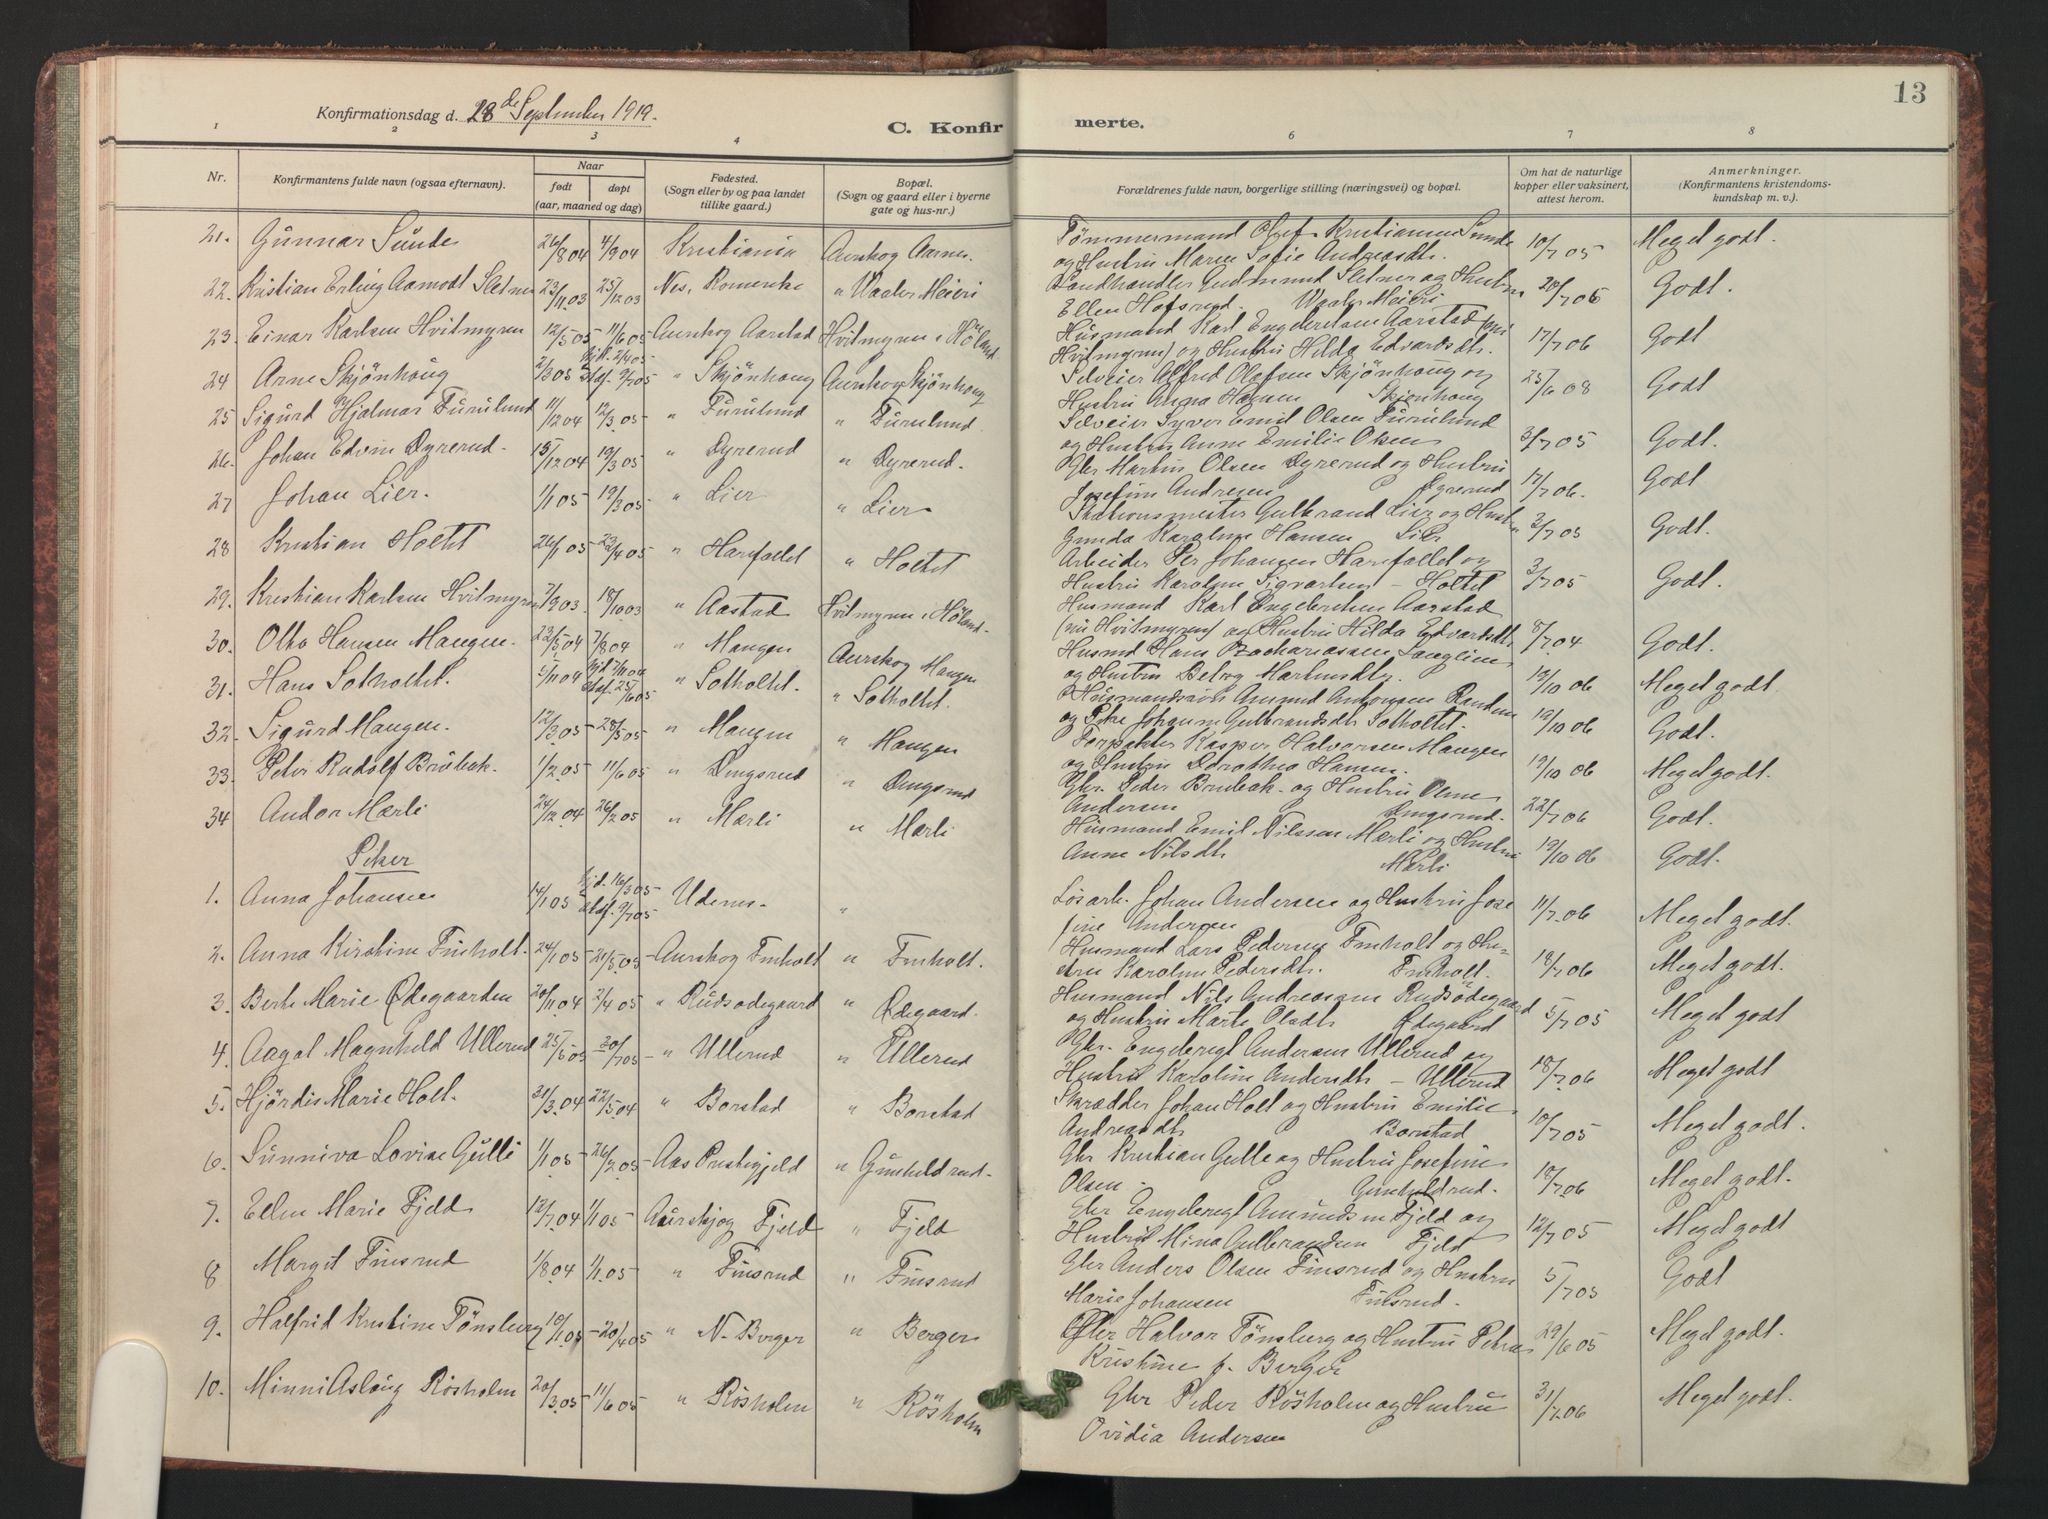 13
Konfirmationsdag d. 28de September 1919.
C. Konfirmerte.
1 2 3 4 6 7 8
Nr. Konfirmantens fulde navn (ogsaa efternavn). Naar født døpt (aar, maaned og dag) Fødested. (Sogn eller by og paa landet tillike gaard.) Bopæl. (Sogn og gaard eller i byerne gate og hus-nr.) Forældrenes fulde navn, borgerlige stilling (næringsvei) og bopæl. Om hat de naturlige kopper eller vaksinert, attest herom. Anmerkninger. (Konfirmantens kristendoms-kundskap m. v.).
21. Gunnar Sunde 26/8 04 4/9 04 Kristiania Aurskog Tømmermand Olaf Kristiansen Sunde og Hustru Maren Sofie Andreasdtr. 10/7 05 Meget godt.
22. Kristian Erling Aamodt Sletner 23/11 03 25/12 03 Nes, Romerike " Vaaler Meieri Landhandler Gudmund Sletner og Hustru Ellen Hofsrud. Vaaler Meieri 20/7 05 Godt.
23. Einar Karlsen Hvitmyren 12/5 05 11/6 05 Aurskog Aarstad Hvitmyren i Höland Husmand Karl Engebretsen Aarstad (nu Hvitmyren) og Hustru Hilda Edvardsdtr. 17/7 06 Godt
24 Arne Skjönhaug 2/3 05 hjd. 2/4 05 stadf. 9/7 05 " Skjönhaug Aurskog Skjönhaug Selveier Alfred Olafsen Skjönhaug og Hustru Anna Hansen Skjenhaug 25/6 08 Godt
25 Sigurd Hjalmar Furulund 11/12 04 12/3 05 " Furulund " Furulund Selveier Syver Emil Olsen Furulund og Hustru Anne Emilie Olsen 3/7 05 Godt.
26. Johan Edvin Dyrerud 15/12 04 19/3 05 " Dyrerud " Dyrerud. Gbr Martin Olsen Dyrerud og Hustru Josefine Andresen Dyrerud 17/7 06. Godt
27 Johan Lier. 1/1 05 19/3 05 " Lier " Lier Stationsmester Gulbrand Lier og Hustru Gunda Karoline Hansen Lier 3/7 05 Godt.
28 Kristian Holtet 26/1 05 23/4 05 " Harefallet " Holtet Arbeider Per Johansen Harefallet og Hustru Karoline Sigvartsen - Holtet 3/7 05 Godt.
29. Kristian Karlsen Hvitmyren 7/9 03 18/10 03 " Aastad Hvitmyren i Höland. Husmand Karl Engebretsen Aarstad (nu Hvitmyren) og Hustru Hilda Edvardsdtr 8/7 04 Godt.
30. Otto Hansen Mangen. 22/5 04 7/8 04 " Mangen Aurskog Mangen Husmd Hans Zachariassen og Hustru Betzy Martinsdtr. 19/10 06 Meget godt
31. Hans Sotholtet. 5/11 04 " Sotholtet. " Sotholtet. og Pike Johanne Gulbrandsdtr Sotholtet. 19/10 06 Godt.
32. Sigurd Mangen. 12/3 05 28/5 05 " Mangen " Mangen Forpakter Kasper Halvorsen Mangen og Hustru Dorothea Hansen. 19/10 06 Meget godt.
33. Peter Rudolf Brubak. 1/2 05 11/6 05 " Dingsrud " Dingsrud Gbr. Peder Brubak og Hustru Oline Andersen Dingsrud. 22/7 06 Godt.
34 Andor Mærli 24/12 04 26/2 05 " Mærli " Mærli Husmand Emil Nilssen Mærli og Hustru Anne Nilsdtr Mærli 19/10 06 Godt.
Piker
1. Anna Johansen 14/1 05 hjd. 16/3 05 stadf. 9/7 05 Udenes. " Løsarb. Johan Andersen og Hustru Josefine Andersen 11/7 06 Meget godt.
2. Anna Kirstine Finholt. 24/1 05 21/5 05 Aurskog Finholt " Finholt. Husmand Lars Pedersen Finholt og Hustru Karoline Pedersdtr. Finholt. 18/7 06 Meget godt.
3. Berte Marie Ødegaarden 20/11 04 2/4 05 " Rudsødegaard " Ødegaard. Husmand Nils Andreassen Rudsödegaard og Hustru Marte Olsdtr Ødegaard 5/7 05 Meget godt
4. Aagot Magnhild Ullerud 25/5 05 30/7 05 " Ullerud " Ullerud Gbr. Engebregt Andersen Ullerud og Hustru Karoline Andersdtr - Ullerud 18/7 06 Meget godt
5. Hjördis Marie Holt. 31/3 04 22/5 04 " Borstad " Borstad Skrædder Johan Holt og Hustru Emilie Andreasdtr Borstad 10/7 05 Meget godt.
6. Sunniva Lovise Gulli 1/1 05 26/2 05 Aas Prestegjeld " Gunhildrud. Gbr Kristian Gulle og Hustru Josefine Olsen - Gunhildrud. 18/7 06 Meget godt.
7. Ellen Marie Fjeld 12/7 04 1/1 05 Aurskog Fjeld " Fjeld Gbr Engebregt Amundsen Fjeld og Hustru Mina Gulbrandsen Fjeld 12/7 05 Meget godt
8 Margit Finsrud 1/8 04 1/1 05 " Finsrud " Finsrud Gbr Anders Olsen Finsrud og Hustru Marie Johansen Finsrud. 5/7 05 Godt
9. Halfrid Kristine Tönsberg 10/1 05 20/4 05 " N. Berger " Berger Halvor Tönsberg og Hustru Petra Kristine f. Berger 29/6 05 Meget godt.
10. Minni Aslaug Rösholm 20/3 05 11/6 05 " Rösholm " Rösholm Gbr Peder Rösholm og Hustru Ovidia Andersen 31/7 06 Meget godt.